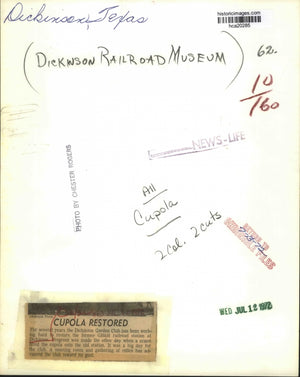 Dickinson, Texas
historicimages.com
hca20285
(DICKINSON RAILROAD MUSEUM)
62.
10
/160
NEWS - LIFE
PHOTO BY CHESTER ROGERS
All
Cupola
2 Col. 2 cuts
WED JUL 12 1972
CUPOLA RESTORED
The several years the Dickinson Garden Club has been work-
ing hard to restore the former GH&H railroad station at
Dickinson. Progress was made the other day when a crane
the cupola onto the old station. It was a big day for
the club. A meeting room and gathering of relics has ad-
vanced the club toward its goal.